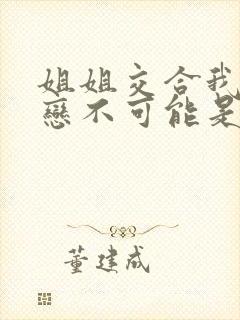 姐姐交合我
戀不可能是
董建成